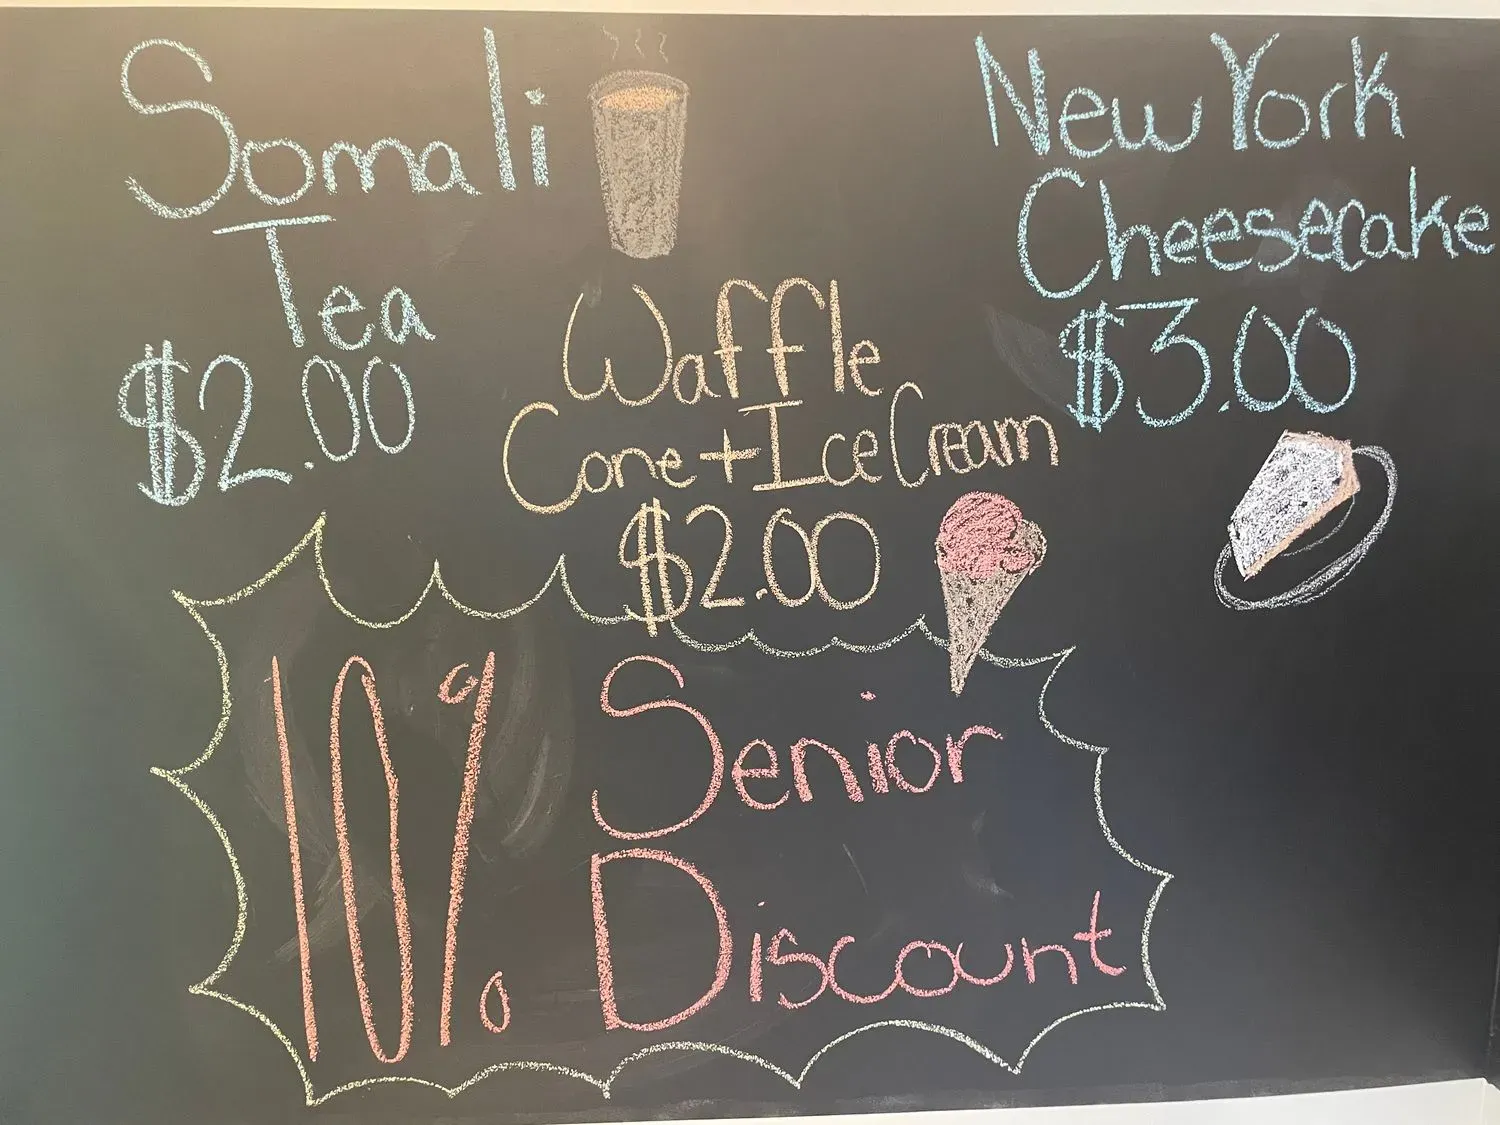 Somali
Tea
$2.00
New York
Cheesecake
$3.00
Waffle
Cone + Ice Cream
$2.00
10%
Senior
Discount